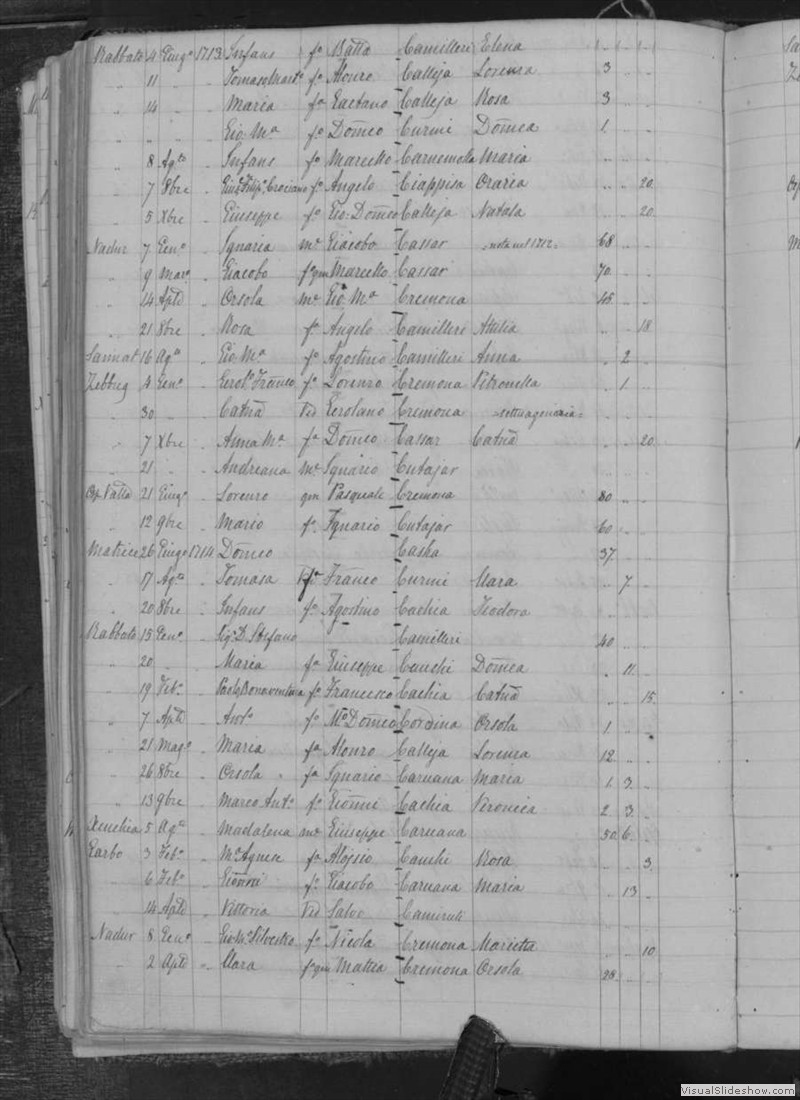 Rabbato 4 Giug.o 1713 Infans f.o Batta Camilleri Elena
" 11 " " Tomaso Mart.o f.o Alonzo Calleja Lorenza 3
" 14 " " Maria f.a Gaetano Calleja Rosa 3
" " " " Gio: M.a f.o Dom̃co Curmi Dom̃ca 1
" 8 Ag.to " Infans f.o Marcello Carnemolla Maria
" 7 8bre " f.o Angelo Ciappisa Oraria 20
" 5 Xbre " Giuseppe f.o Gio: Dom̃co Calleja Natala 20
Nadur 7 Gen.o " Ignaria m.e Giacobo Cassar 68
" 9 Mar.o " Giacobo f.o qm Marcello Cassar 70
" 14 Aple " Orsola m.e Gio M.a Cremona 45
" 21 8bre " Rosa f.a Angelo Camilleri Attilia 18
Sannat 16 Ag.o " Gio M.a f.o Agostino Camilleri Anna 2
Zebbug 4 Gen.o " Gerol.o Franco f.o Lorenzo Cremona Petronella 1
" 30 " " Catña Vid Gerolano Cremona = settuagenaria =
" 7 Xbre " Anna M.a f.a Dom̃co Cassar Catña 20
" 21 " " Andreana m.e Ignazio Cutajar
Osp Valta 21 Giug.o " Lorenzo qm Pasquale Cremona 80
" 12 9bre " Mario f.o Ignazio Cutajar 60
Matrice 26 Giugo 1714 Dom̃co Casha 37
" 17 Ag.o " Tomasa Franco Curmi Clara 7
" 20 8bre " Infans f.o Agostino Cachia Teodora
Rabbato 15 Gen.o " Sig. D. Stefano Camilleri 40
" 20 " " Maria f.a Giuseppe Cauchi Dom̃ca 11
" 19 Feb.o " Paolo Bonaventura f.o Francesco Cachia Catña 15
" 7 Aple " Ant.o f.o M.o Dom̃co Cordina Orsola 1
" 21 Mag.o " Maria f.a Alonzo Calleja Lorenza 12
" 26 8bre " Orsola f.a Ignazio Caruana Maria 1 3
" 13 9bre " Marco Ant.o f.o Gioñni Cachia Veronica 2 3
Xeuchia 5 Ag.o " Madalena m.e Giuseppe Caruana 50 6
Garbo 3 Feb.o " M.a Agnese f.a Aloysio Cauchi Rosa 3
" 6 Feb.o " Gioñni f.o Giacobo Caruana Maria 13
" 14 Aple " Vittoria Vid Salvo
Nadur 8 Gen.o " Gio: M.a Silvestro f.o Nicola Cremona Marietta 10
" 2 Aple " Clara f.a qm Mattia Cremona Orsola 28
VisualSlideshow.com